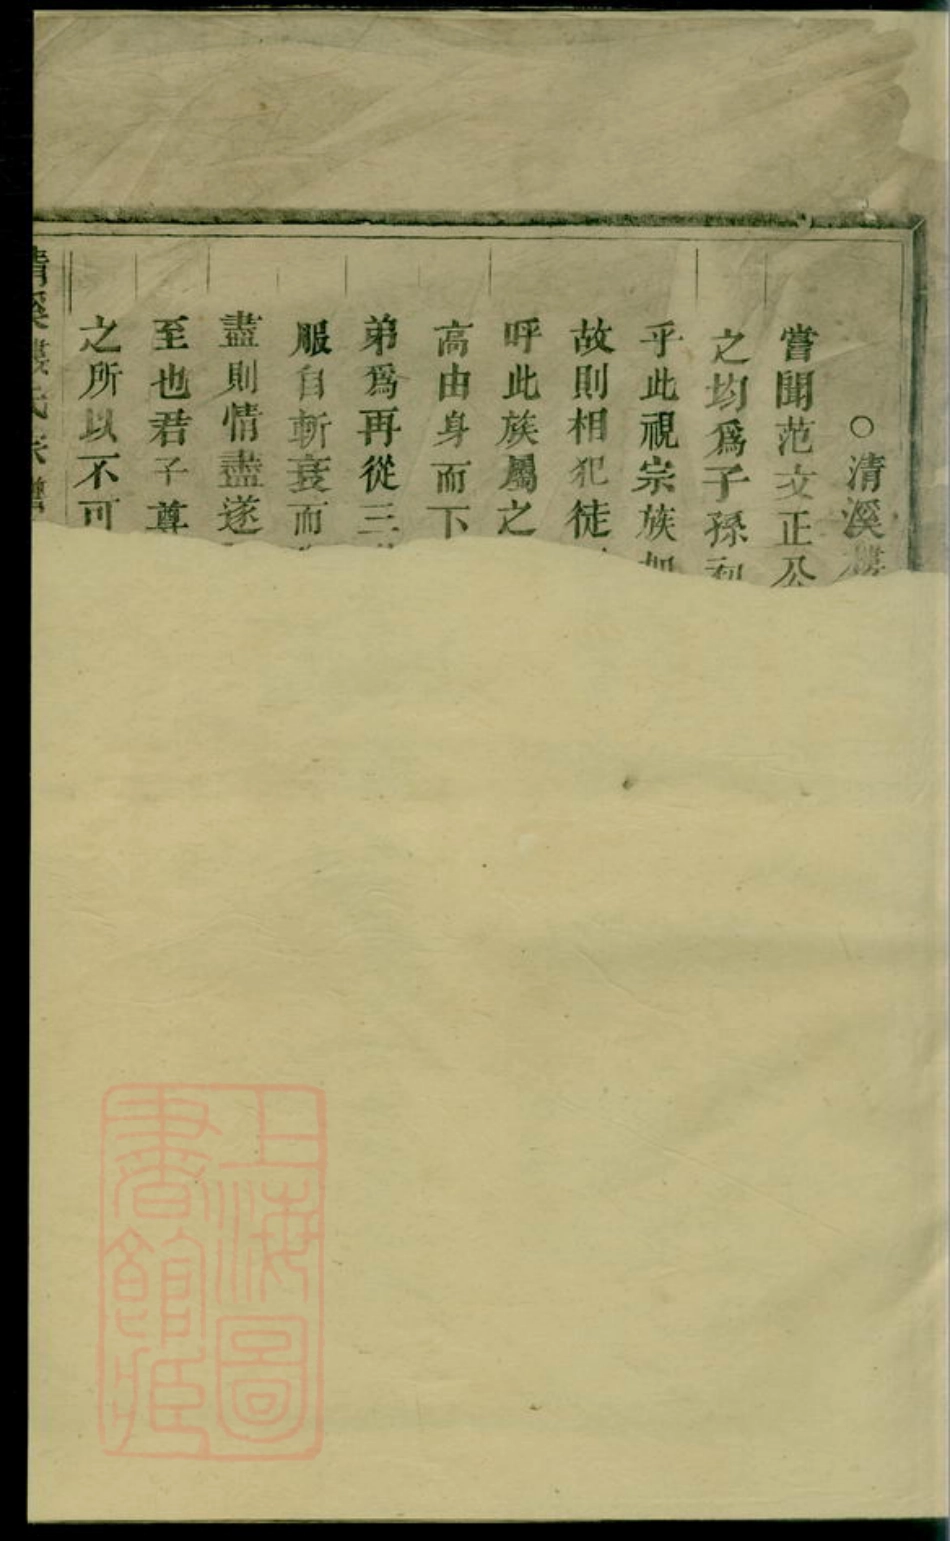 ○清溪
嘗聞范文正公
之均爲子孫
乎此視宗族如
故則相犯徒
呼此族屬之
高由身而下
弟爲再從三
服自斬衰而
盡則情盡遂
至也君子尊
之所以不可
清溪婁氏宗譜
上海圖
書館藏